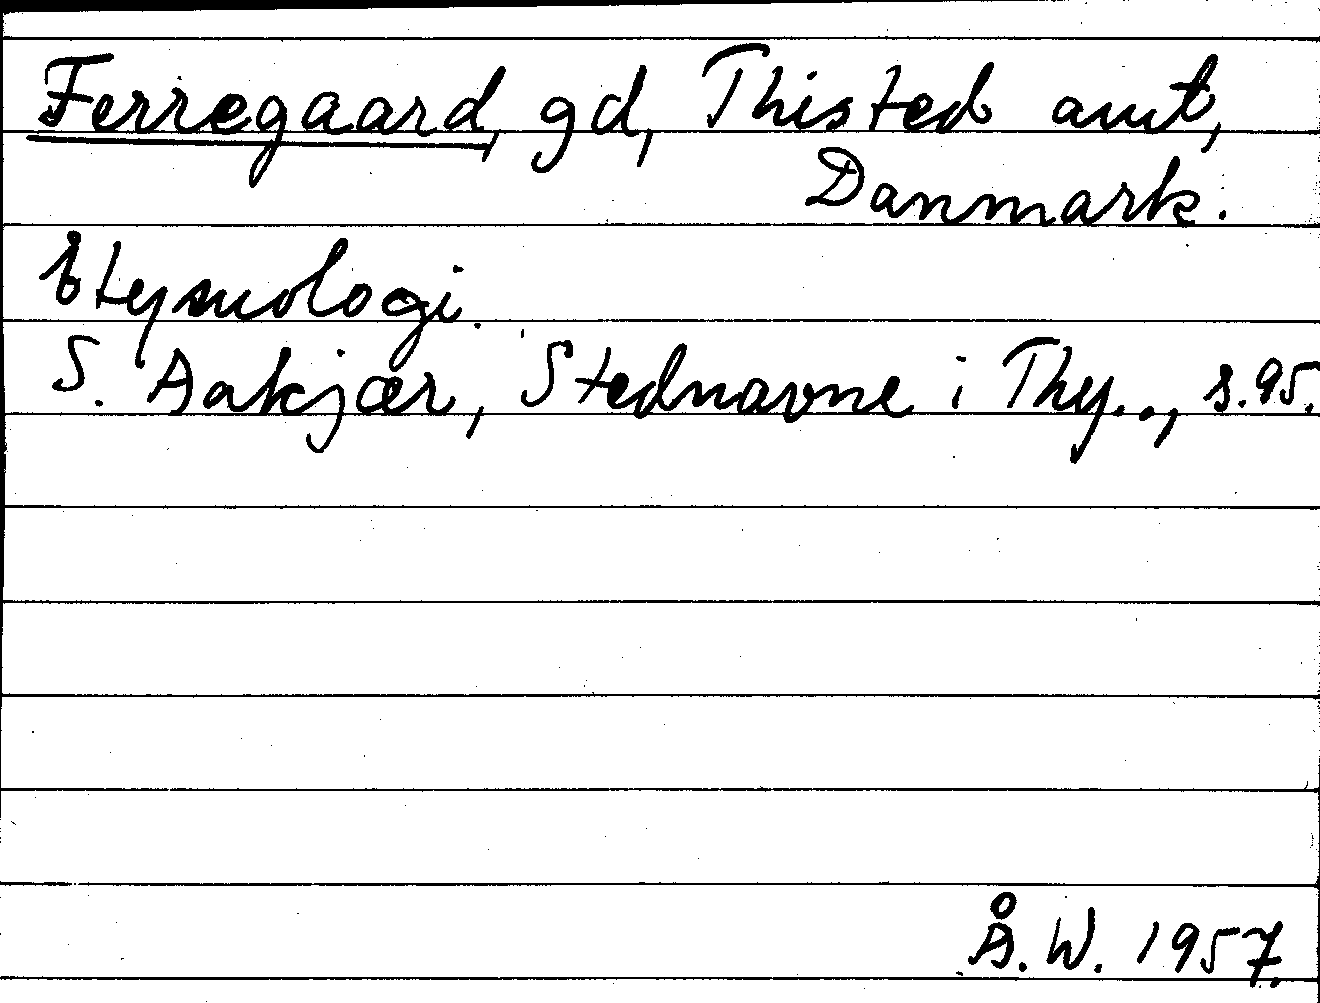 Ferregaard, gd, Thisted amt,
Danmark.
Etymologi.
S. Aakjær, Stednavne i Thy.., s.95.
Å.W. 1957.